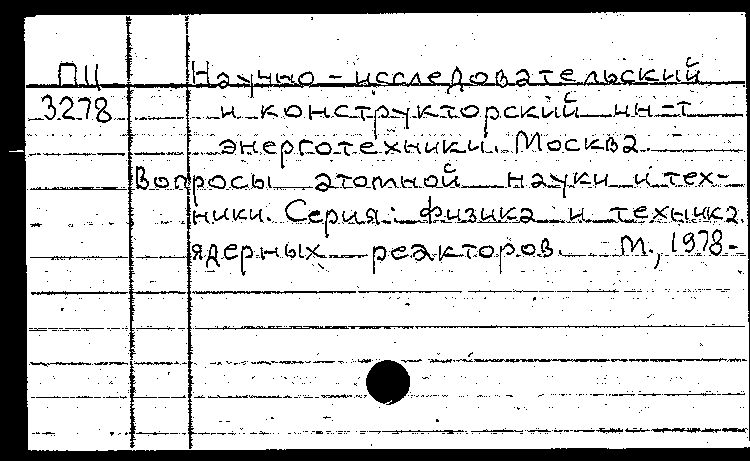 ПЦ Научно-исследовательский
3278 и конструкторский ин-т
энерготехники. Москва.
Вопросы атомной науки и тех-
ники. Серия: Физика и техника
ядерных реакторов. М., 1978-